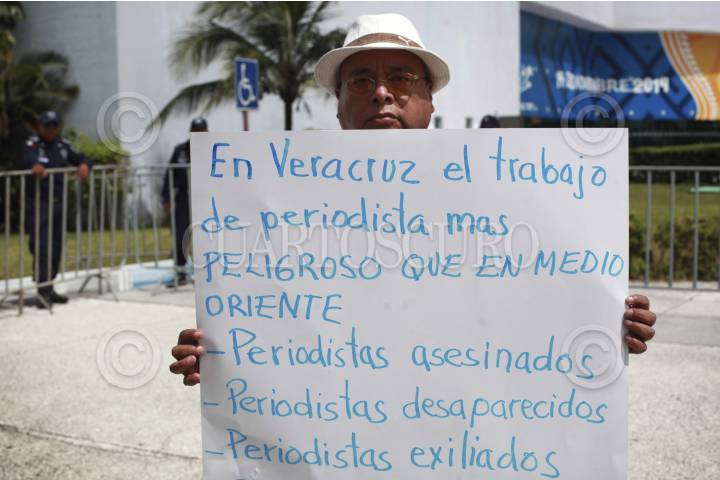 OCTUBRE 2019
En Veracruz el trabajo
de periodista mas
PELIGROSO QUE EN MEDIO
ORIENTE
- Periodistas asesinados
- Periodistas desaparecidos
- Periodistas exiliados
© CUARTOSCURO